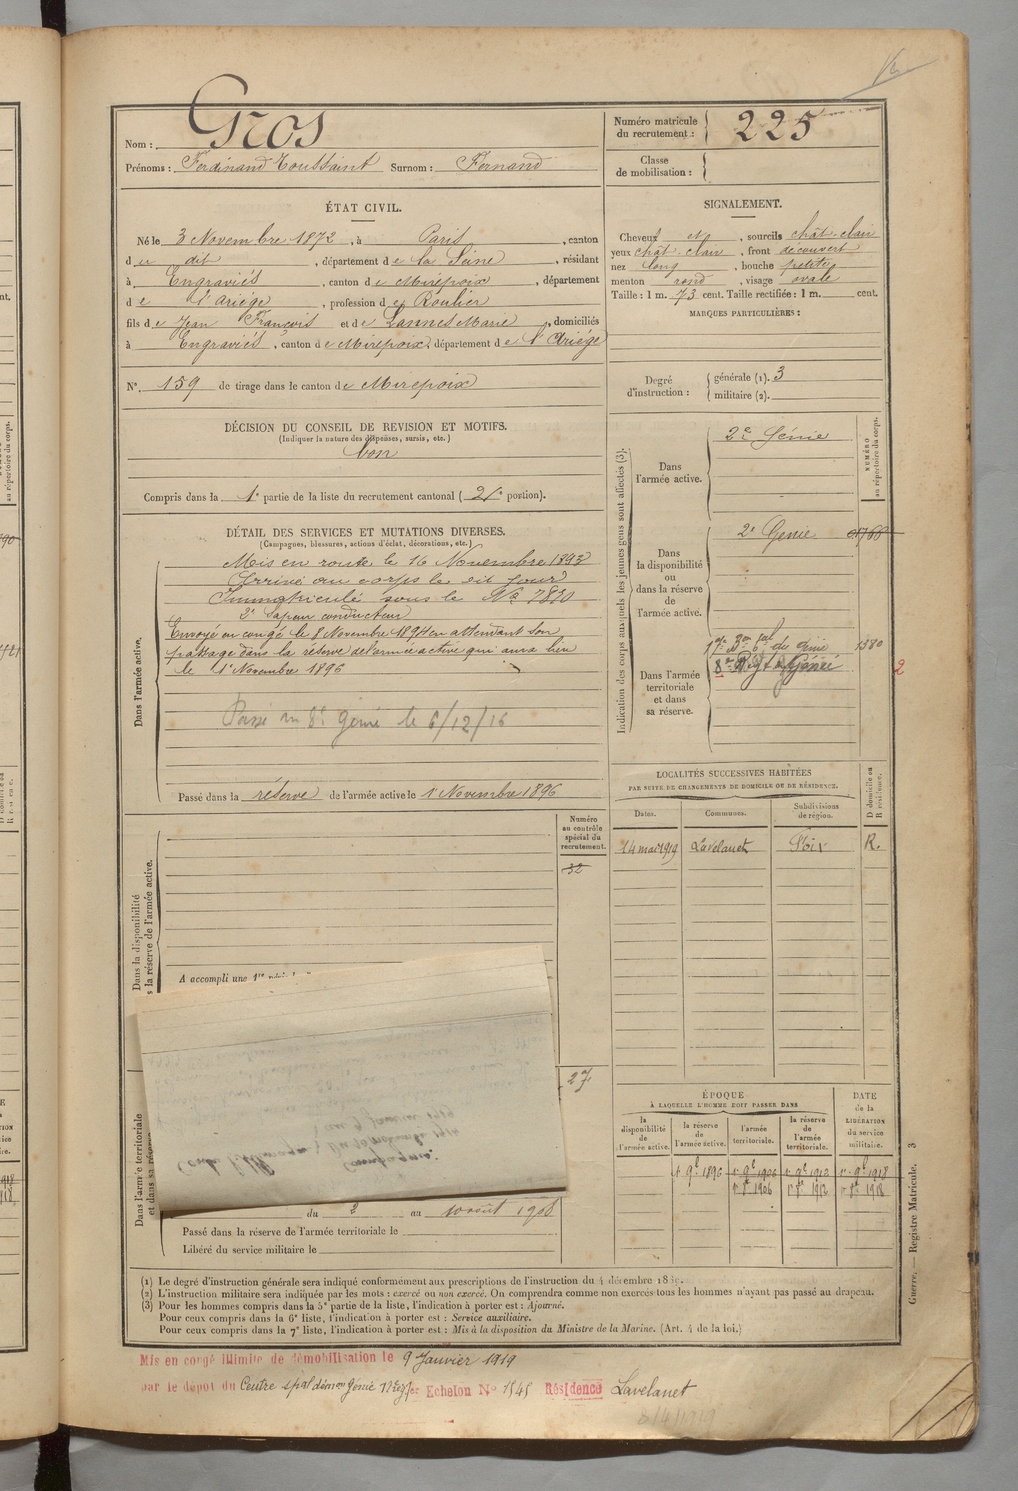 Nom : Gros
Prénoms : Ferdinand Toussaint Surnom : Fernand
Numéro matricule du recrutement : 225
Classe de mobilisation :
ÉTAT CIVIL.
Né le 3 Novembre 1872, à Paris, canton
du dit, département de la Seine, résidant
à Engraviès, canton de Mirepoix, département
de l'Ariège, profession de Roulier
fils de Jean François et de Lannes Marie, domiciliés
à Engraviès, canton de Mirepoix, département de l'Ariége
N° 159 de tirage dans le canton de Mirepoix
SIGNALEMENT.
Cheveux et, sourcils chât-clair
yeux chât-clair, front découvert
nez long, bouche petite
menton rond, visage ovale
Taille : 1 m. 73 cent. Taille rectifiée : 1 m. cent.
MARQUES PARTICULIÈRES :
Degré d'instruction : générale (1). 3
militaire (2).
DÉCISION DU CONSEIL DE REVISION ET MOTIFS.
(Indiquer la nature des dispenses, sursis, etc.)
bon
Compris dans la 1e partie de la liste du recrutement cantonal (2e portion).
DÉTAIL DES SERVICES ET MUTATIONS DIVERSES.
(Campagnes, blessures, actions d'éclat, décorations, etc.)
Dans l'armée active.
Mis en route le 16 Novembre 1893
Arrivé au corps le dit jour
Immatriculé sous le No 7830
2e Sapeur conducteur
Envoyé en congé le 8 Novembre 1894 en attendant son
passage dans la réserve de l'armée active qui aura lieu
le 1er Novembre 1896
Passé au 8e Génie le 6/12/16
Passé dans la réserve de l'armée active le 1 Novembre 1896
Indication des corps auxquels les jeunes gens sont affectés (3).
NUMÉRO au répertoire du corps.
Dans l'armée active.
2e Génie
Dans la disponibilité ou dans la réserve de l'armée active.
2e Génie
Dans l'armée territoriale et dans sa réserve.
du génie 1380
2
LOCALITÉS SUCCESSIVES HABITÉES
PAR SUITE DE CHANGEMENTS DE DOMICILE OU DE RÉSIDENCE.
Dates. Communes. Subdivisions de région. D domicile ou R résidence.
14 mai 1919 Lavelanet Foix R.
Numéro au contrôle spécial du recrutement.
32
27
Dans la disponibilité
la réserve de l'armée active.
A accompli une 1re
Campagne.
Dans l'armée territoriale et dans sa
du 2 au 10 août 1908
Passé dans la réserve de l'armée territoriale le
Libéré du service militaire le
ÉPOQUE
À LAQUELLE L'HOMME DOIT PASSER DANS
DATE de la LIBÉRATION du service militaire.
la disponibilité de l'armée active. la réserve de l'armée active. l'armée territoriale. la réserve de l'armée territoriale.
1er 9bre 1896 1er 9bre 1906 1er 9bre 1912 1er 9bre 1918
1er 8bre 1906 1er 8bre 1912 1er 8bre 1918
Guerre. — Registre Matricule. 3
(1) Le degré d'instruction générale sera indiqué conformément aux prescriptions de l'instruction du 4 décembre 1889.
(2) L'instruction militaire sera indiquée par les mots : exercé ou non exercé. On comprendra comme non exercés tous les hommes n'ayant pas passé au drapeau.
(3) Pour les hommes compris dans la 5e partie de la liste, l'indication à porter est : Ajourné.
Pour ceux compris dans la 6e liste, l'indication à porter est : Service auxiliaire.
Pour ceux compris dans la 7e liste, l'indication à porter est : Mis à la disposition du Ministre de la Marine. (Art. 4 de la loi.)
Mis en congé illimité de démobilisation le 9 Janvier 1919
par le dépôt du Centre spal démon Génie Echelon No 1545 Résidence Lavelanet
8/4/1919